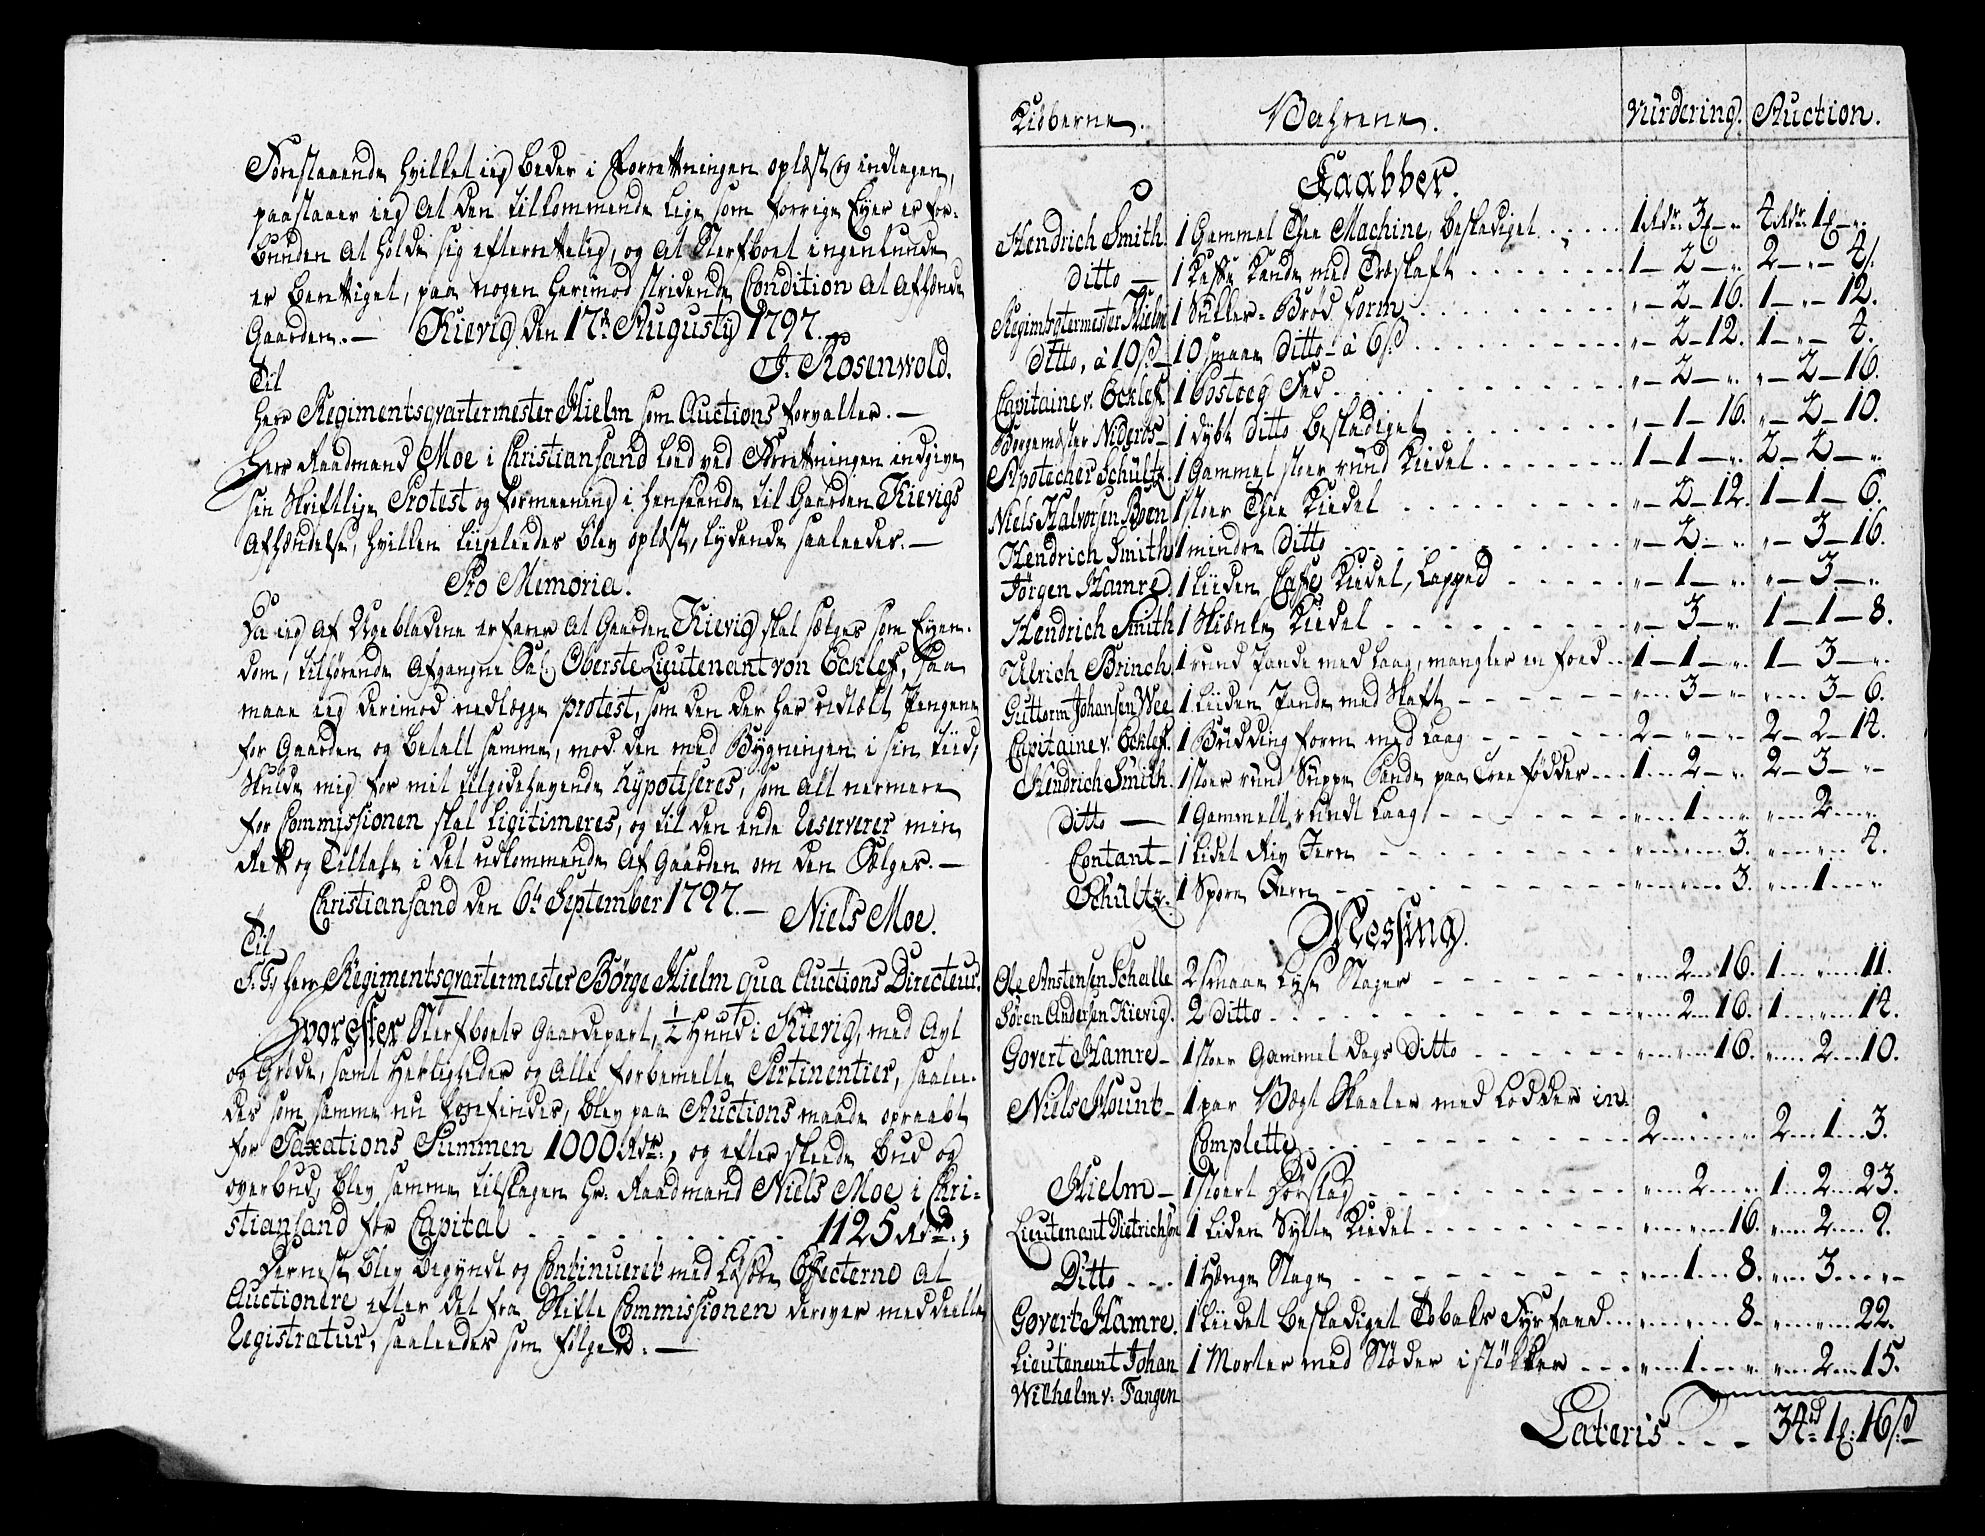 Forestaaende hvilket ieg beder i Forretningen oplæst og indtagen,
paastaaer ieg at den tilkommende lige som forrige Eyer er for-
bunden at holde sig efterrettelig, og at Sterfboet ingenlunde
er berettiget, paa nogen herimod stridende Condition at afhænde
Gaarden. — Kievig den 17de Augusty 1797.
J. Rosenwold.
Til
Herr Regimentsqvartermester Hielm som Auctions forvalter. —
Herr Raadmand Moe i Christiansand lod ved Forretningen indgive
sin skriftlige Protest og formeening i henseende til Gaarden Kievigs
Afhændelse, hvilken ligeleedes blev oplæst, lydende saaleedes. —
Pro Memoria.
Da ieg af Ugebladene erfarer at Gaarden Kievig skal sælges som Eyen-
dom, tilhørende afgangne Sal. Oberste Lieutenant von Ecklef, saa
maae ieg derimod nedlægge protest, som den der har udtælt Pengene
for Gaarden og betalt samme, mod den med Bygningen i sin tiid,
skulde mig for mit tilgodehavende hypotiseres, som alt nærmere
for Commissionen skal ligitimeres, og til den ende Reserverer min
Rett og Tiltale i det udkommende af Gaarden om den Sælges. —
Christiansand den 6te September 1797. — Niels Moe.
Til
S. T. Herr Regimentsqvartermester Börge Hielm qua Auctions Directeur.
Hvorefter Sterfboets Gaardepart, 1/2 Hud i Kievig, med Avl
og Grøde, samt Herligheder og alle forbemelte Pertinentier, saalee-
des som samme nu forefindes, blev paa Auctions maade opraabt
for Taxations Summen 1000 Rdr., og efter skeede bud og
overbud, blev samme tilslagen Hr. Raadmand Niels Moe i Chri-
stiansand for Capital - - - - - - 1125 Rdr.,
Dernest blev begyndt og Continueret med Løsøre Effecterne at
Auctionere efter det fra Skifte Commissionen derover meddeelte
Registratur, saaleedes som følger. —
Kiöberne. Vahrene. Vurdering. Auction.
Kaabber.
Hendrich Smith. 1 Gammel Thee Machine, beskadiget . . . 1 Rdr. 3 - „ 4 Rdr. 1 - „
Ditto — 1 Kaffe Kande med Træskaft . . . 1 - 2 - „ 2 - „ - 4 s.
Regimtqtermester Hielm 1 Sukker-Brød form . . . „ - 2 - 16. 1 - „ - 12.
Ditto, à 10 s. 10 smaae Ditto - à 6 s. . . . „ - 2 - 12. 1 - „ - 4.
Capitaine v. Ecklef. 1 Posteeg Fad . . . „ - 2 - „. „ - 2 - 16.
Borgemester Nideros - 1 dybt Ditto beskadiget . . . „ - 1 - 16. „ - 2 - 10.
Apotecher Schültz. 1 Gammel stoer rund Kiedel . . . 1 - 1 - „. 2 - 2 - „.
Niels Halvorsen Boen 1 stoer Thee Kiedel . . . „ - 2 - 12. 1 - 1 - 6.
Hendrich Smith 1 mindre Ditto . . . „ - 2 - „. „ - 3 - 16.
Jörgen Hamre. 1 liiden Caffe Kiedel, Lapped . . . „ - 1 - „. „ - 3 - „.
Hendrich Smith 1 Skiænke Kiedel . . . „ - 3 - „. 1 - 1 - 8.
Ulrich Brinch. 1 rund Pande med Laag, mangler en foed . . 1 - 1 - „. 1 - 3 - „.
Guttorm Johansen Wee 1 liiden Pande med Skaft . . . „ - 3 - „ „ - 3 - 6.
Capitaine v. Ecklef. 1 Büdding form med Laag . . . 2 - „ - „ 2 - 2 - 14.
Hendrich Smith. 1 stoer rund Suppe Pande paa tree födder . . . 1 - 2 - „ 2 - 3 - „
Ditto — 1 Gammelt rundt Laag . . . „ - 1 - „ „ - 2 - „
Contant - 1 lidet Riv Jern . . . „ - „ - 3. „ - „ - 4.
Schultz. 1 Spore Jern . . . „ - „ - 3. „ - 1 - „
Messing.
Ole Anstensen Schalle 2 smaae Lyse Stager . . . „ - 2 - 16. 1 - „ - 11.
Sören Andersen Kievig. 2 Ditto . . . „ - 2 - 16. 1 - „ - 14.
Govert Hamre - 1 stoer Gammel dags Ditto . . . „ - „ - 16. „ - 2 - 10.
Niels Mount - 1 par Vægt Skaaler med Lodder in-
Complette . . . 2 - „ - „ 2 - 1 - 3.
Hielm - 1 stoert Dörslag . . . „ - 2 - „ 1 - 2 - 23.
Lieutenant Dietrichson 1 Liden Sylte Kiedel . . . „ - „ - 16. „ - 2 - 9.
Ditto - - - 1 Hænge Stage . . . „ - 1 - 8. „ - 3 - „
Govert Hamre. 1 liidet beskadiget Tobaks Fyrfaed . . . „ - „ - 8 - „ - „ - 22.
Lieutenant Johan 1 Morter med Stöder i stökker . . . „ - 1 - „. „ - 2 - 15.
Wilhelm v: Tangen
Lateris - - - 34 rd 1 : 16 s.